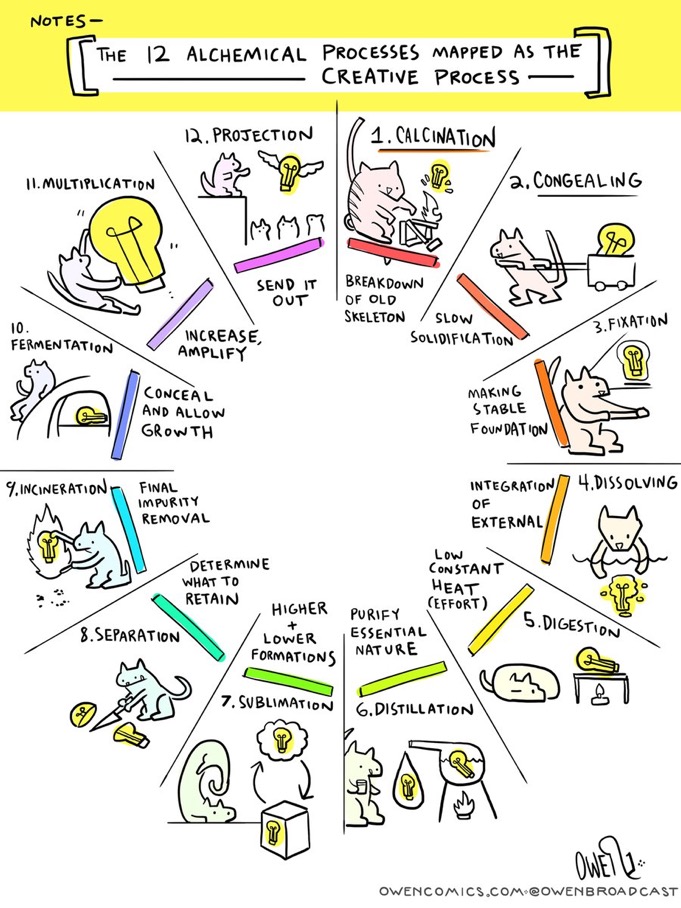 NOTES—
THE 12 ALCHEMICAL PROCESSES MAPPED AS THE
CREATIVE PROCESS
1. CALCINATION
BREAKDOWN
OF OLD
SKELETON
2. CONGEALING
SLOW
SOLIDIFICATION
3. FIXATION
MAKING
STABLE
FOUNDATION
4. DISSOLVING
INTEGRATION
OF
EXTERNAL
5. DIGESTION
LOW
CONSTANT
HEAT
(EFFORT)
6. DISTILLATION
PURIFY
ESSENTIAL
NATURE
7. SUBLIMATION
HIGHER
+
LOWER
FORMATIONS
8. SEPARATION
DETERMINE
WHAT TO
RETAIN
9. INCINERATION
FINAL
IMPURITY
REMOVAL
10.
FERMENTATION
CONCEAL
AND ALLOW
GROWTH
11. MULTIPLICATION
INCREASE,
AMPLIFY
12. PROJECTION
SEND IT
OUT
OWEN
OWENCOMICS.COM·@OWENBROADCAST